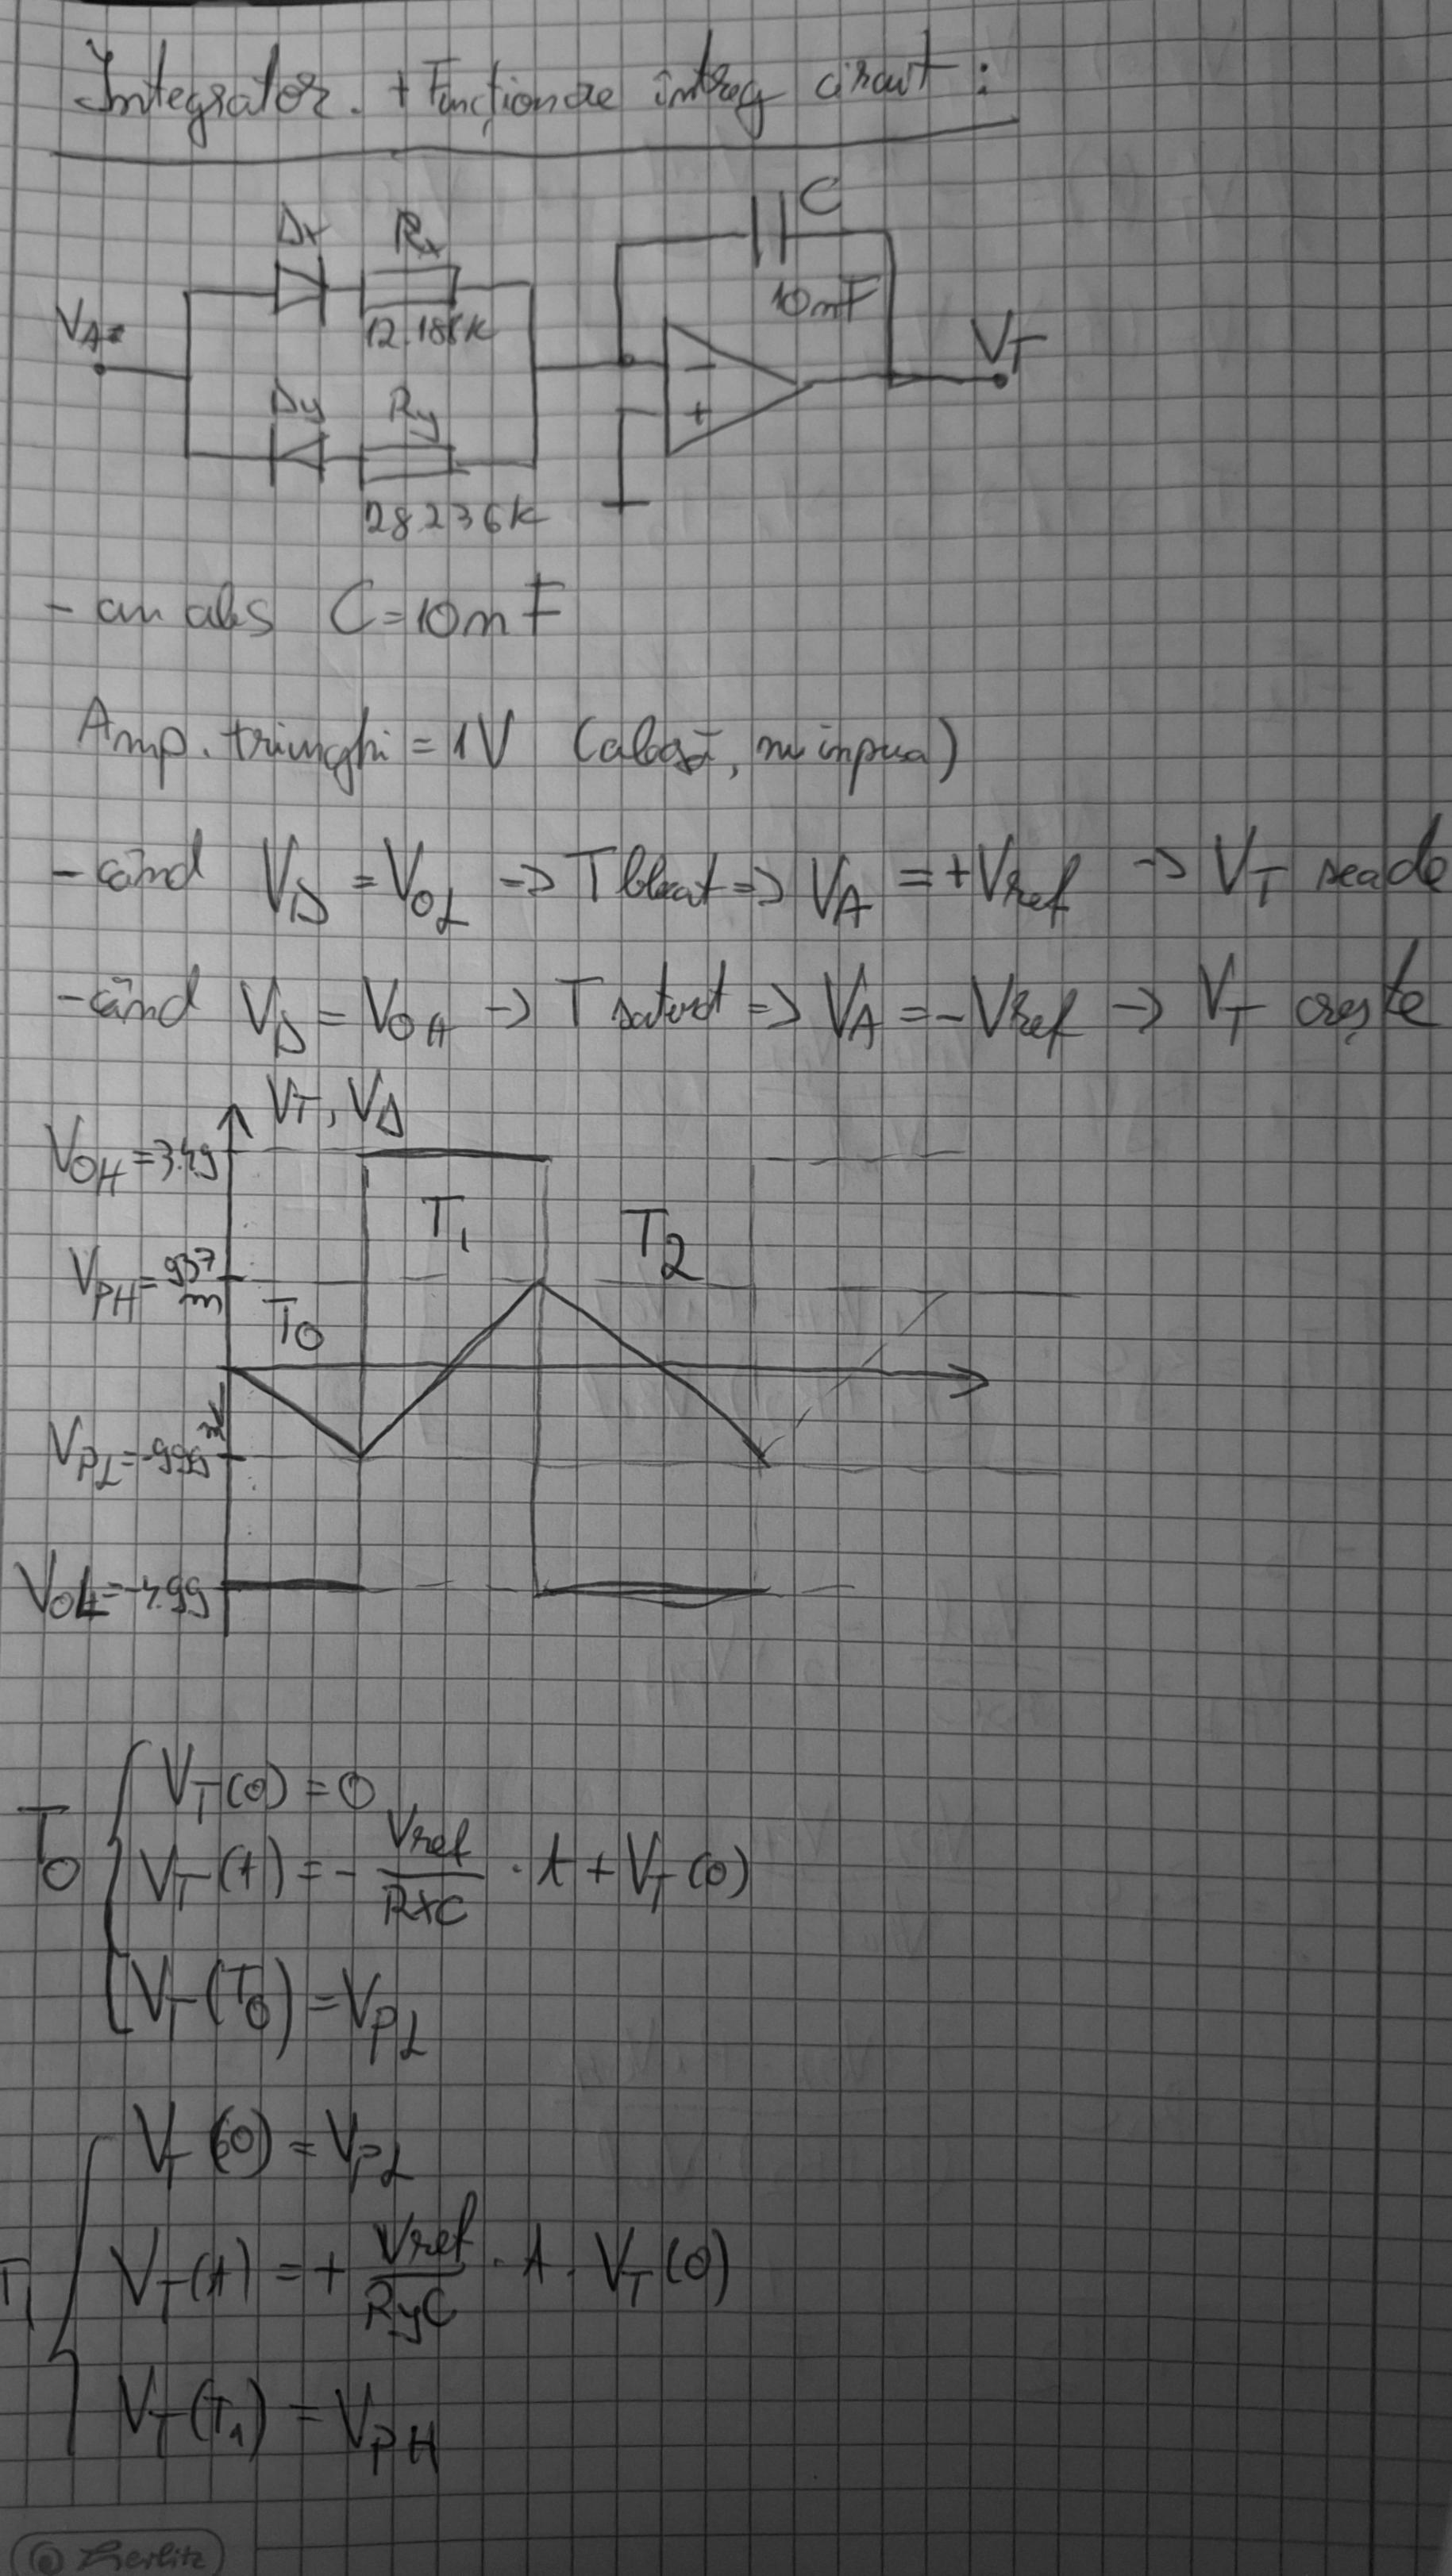 Integrator. + Funcționare întreg circuit:
C
Dx Rx
10nF
12.188K
VA
VT
-
+
Dy Ry
28.236K
- am ales C=10nF
Amp. triunghi = 1V (aleasă, nu impusă)
- când VD = VOL -> T blocat => VA = +Vref -> VT scade
- când VD = VOH -> T saturat => VA = -Vref -> VT crește
VT, VD
VOH =
T1
T2
VPH = 937 m
T0
VPL = -999 m
VOL = -4.99
T0 VT(0) = 0
VT(t) = - Vref/RxC · t + VT(0)
VT(T0) = VPL
T1 VT(0) = VPL
VT(t) = + Vref/RyC · t · VT(0)
VT(T1) = VPH
Herlitz